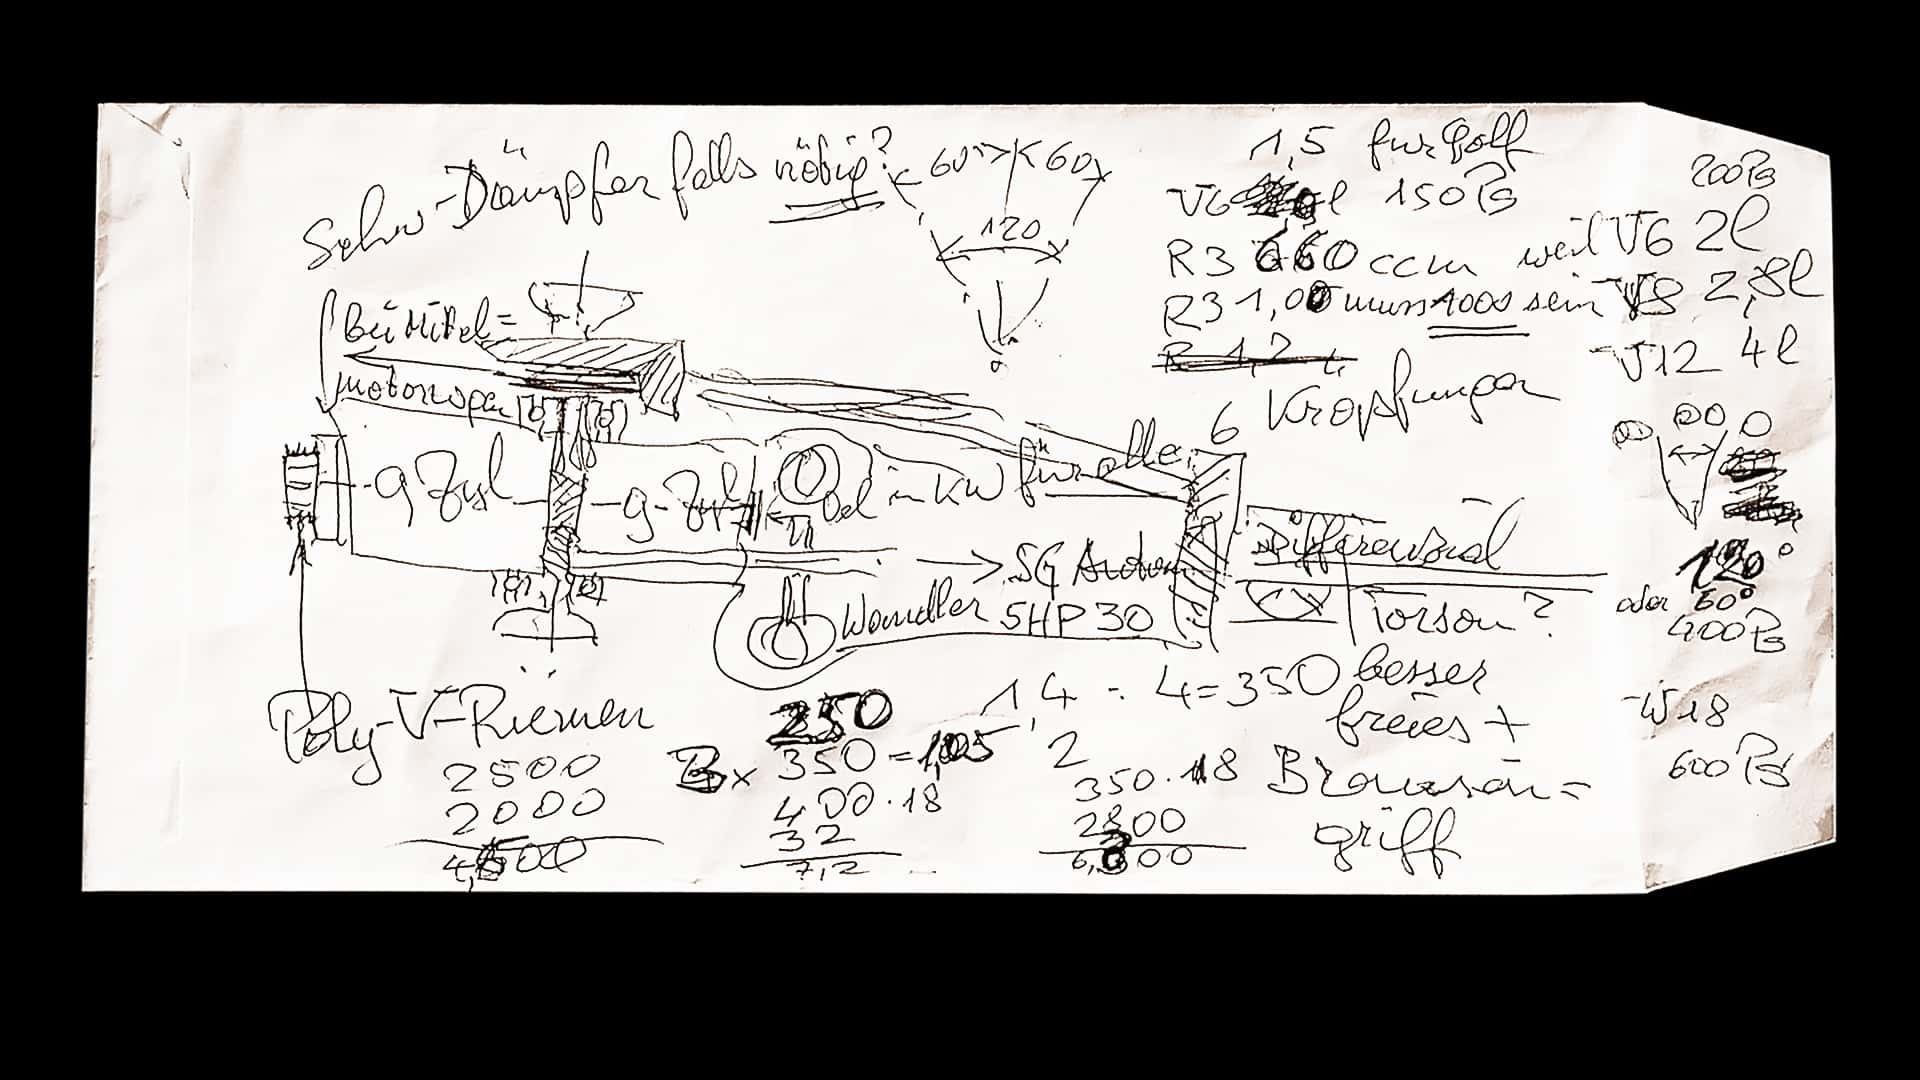 Schw-Dämpfer falls nötig?
60° 60
120
1,5 für Golf
V6 l 150 PS
R3 660 ccm weil
R3 1,00 muss 1000 sein
R 1,2
6 Kröpfungen
200 PS
V6 2l
V8 2,8l
V12 4l
120°
oder 60°
400 PS
W18
600 PS
Bei Mittel=
motorwagen
9 Zyl 9-Zyl
in KW für alle
SG Autom
Wandler 5HP30
Differenzial
Torson?
besser
freies +
Browsen=
griff
Poly-V-Riemen
2500
2000
4,500
250
350 = 1,05
400 · 18
32
7,2
1,4 : 4 = 350
2
350 · 18
2800
6,300